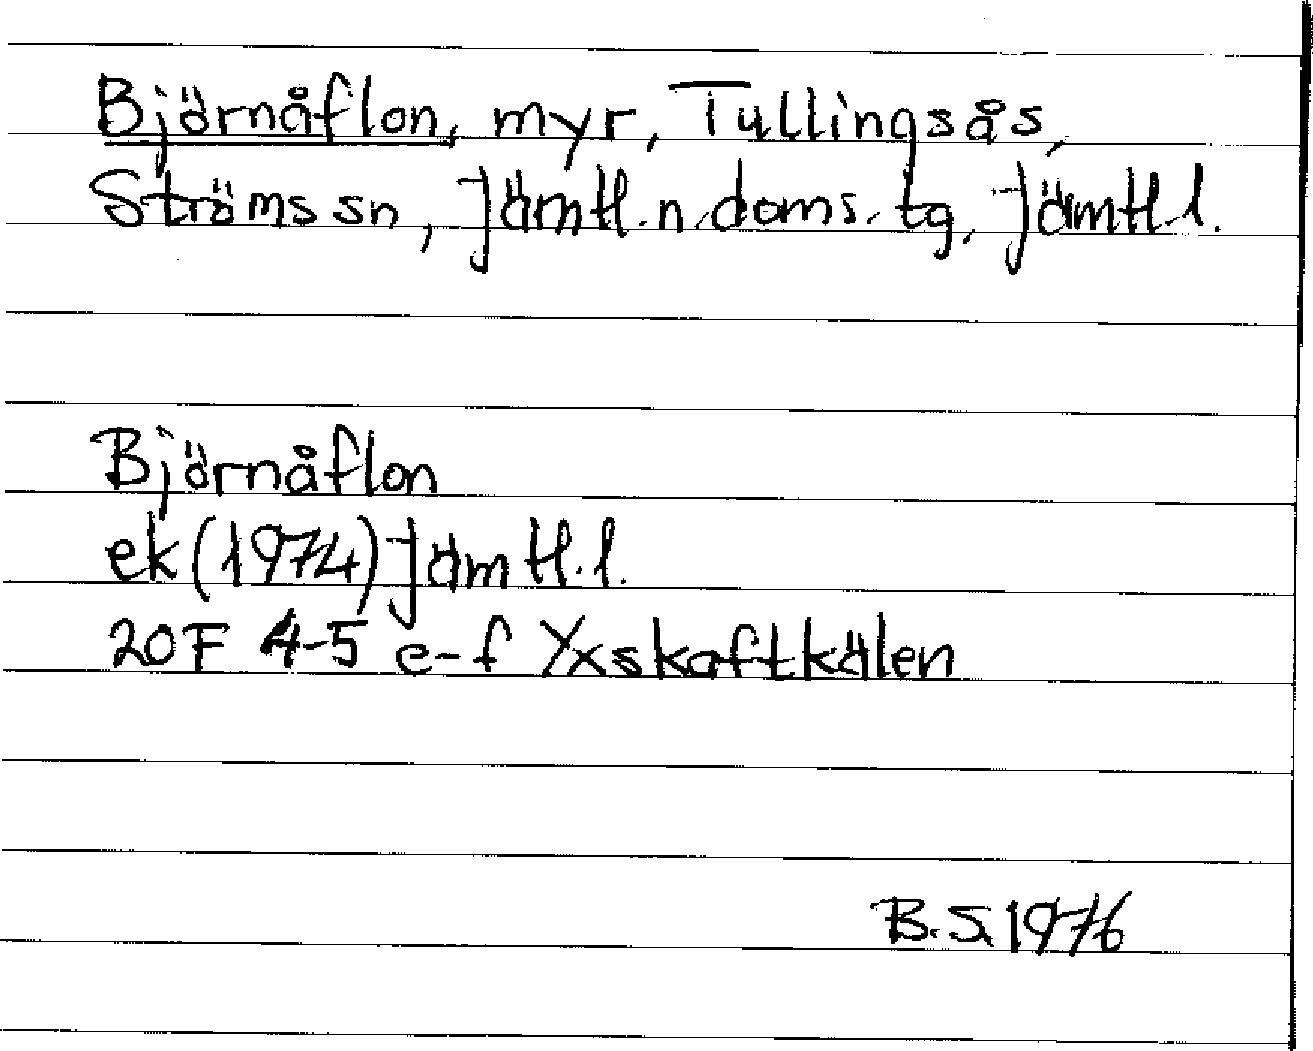 Björnåflon, myr, Tullingsås,
Ströms sn, Jämtl. n. doms. tg, Jämtl. l.
Björnåflon
ek (1974) Jämtl. l.
20F 4-5 e-f Yxskaftkälen
B.S. 1976